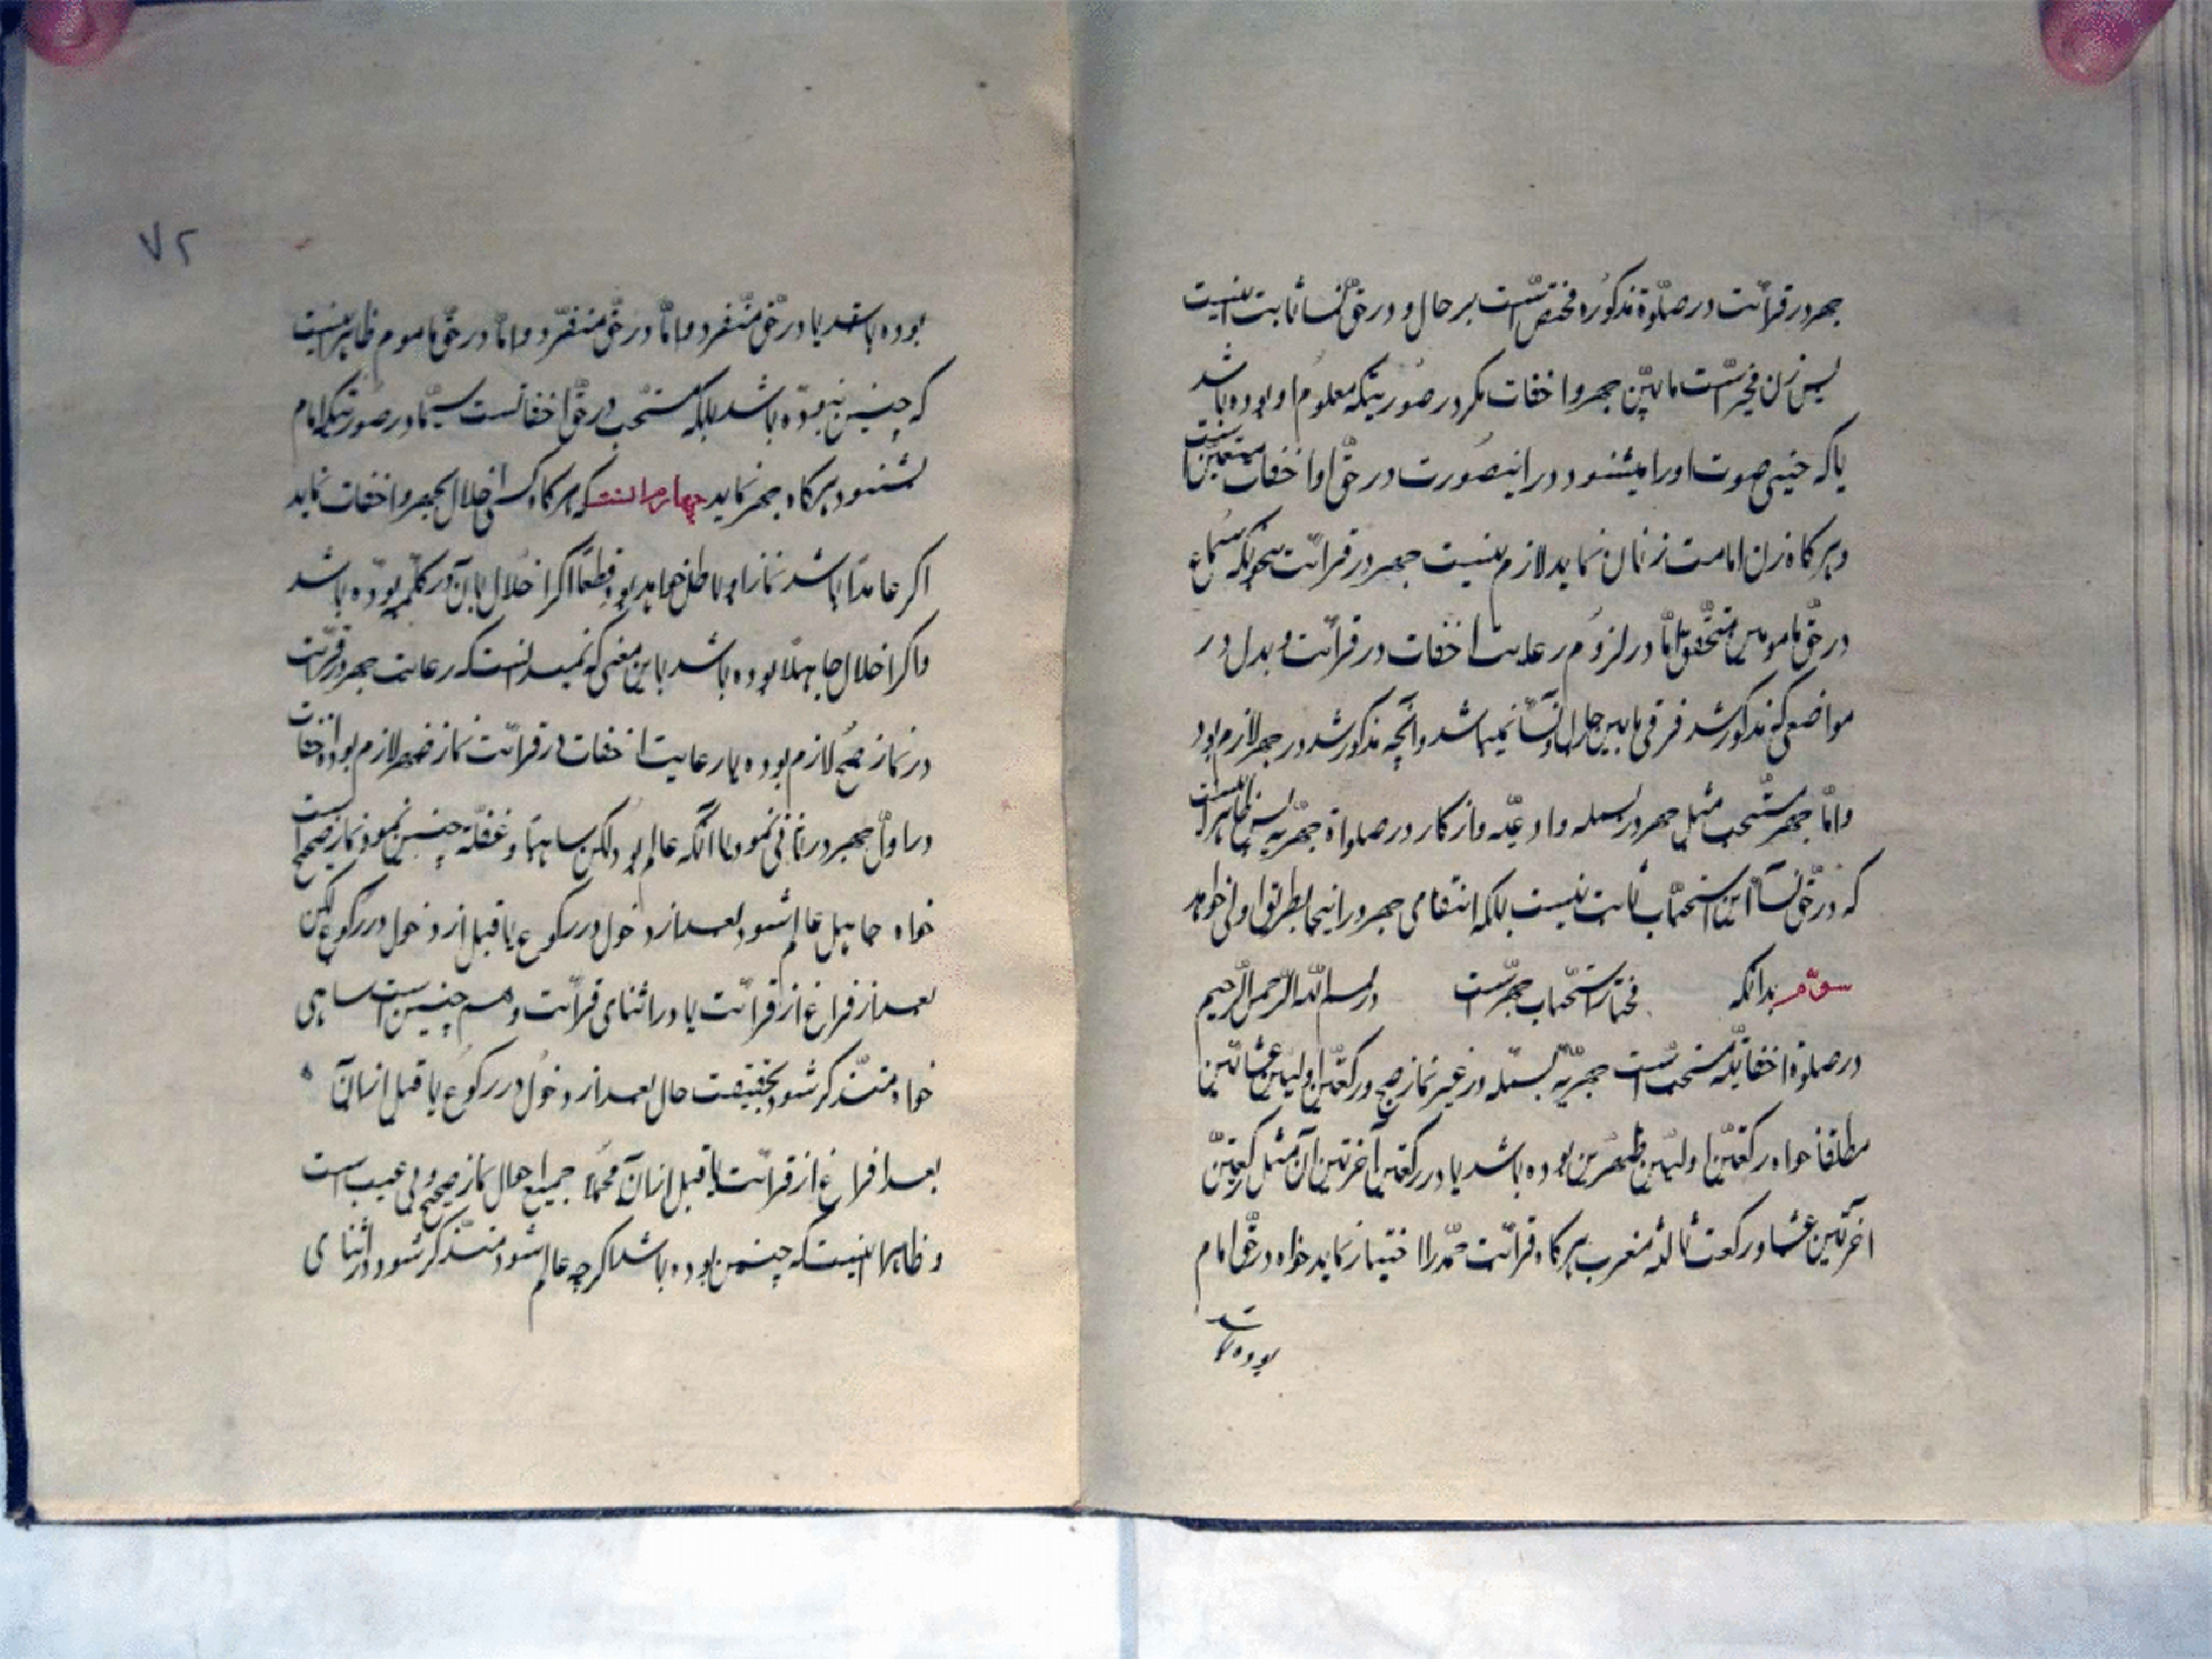 جهر در قرائت در صلوة مذکوره مختص است برحال و در حق نسا ثابت نیست
پس زن مخیر است مابین جهر و اخفات مکر در صورتیکه معلوم او بوده باشد
یا که جنبی صوت اورا میشنود در اینصورت در حق او اخفات متعین است
و هرکاه زن امامت زنان نماید لازم نیست جهر در قرائت بنحویکه سماع
در حق مامومین متحقق امّا در لزوم رعایت اخفات در قرائت و بدل در
مواضعی که مذکور شد فرقی مابین رجال و نسآء نمیباشد و آنچه مذکور شد در جهر لازم بود
و امّا جهر مستحب مثل جهر در بسمله و ادعیّه و ازکار در صلواة جهریّه پس ظاهر اینست
که در حق نسآء این استحباب ثابت نیست بلکه انتفای جهر در اینجا بطریق اولی خواهد
سوّم بدانکه مختار استحباب جهر است در بسم الله الرّحمن الرّحیم
در صلوة اخفاتیّه مستحب است جهریّه بسمله در غیر نماز صبح و رکعتین اولیین عشائین
مطلقا خواه رکعتین اولیین ظهرین بوده باشد یا در رکعتین آخرتین آن مثل رکعتین
آخرتین عشا و رکعت ثالثه مغرب هرکاه قرائت حمد را اختیار نماید خواه در حق امام
بوده باشد
٧٢
بوده باشد یا در حق منفرد و امّا در حق منفرد و امّا در حق ماموم ظاهر اینست
که چنین نبوده باشد بلکه مستحب در حق اخفاتست سیّما در صورتیکه امام
بشنود هرکاه جهر نماید چهارم انست که هرکاه کسی اخلال بجهر و اخفات نماید
اکر عامدا باشد نماز او باطل خواهد بود قطعا اکر اخلال بآن در کلمه بوده باشد
و اکر اخلال جاهلا بوده باشد باین معنی که نمیدانست که رعایت جهر در قرائت
در نماز صبح لازم بوده یا رعایت اخفات در قرائت نماز ظهر لازم بوده اخفات
در اول جهر در ثانی نمود یا آنکه عالم بود لکن ساهیا و غفلة چنین نمود نماز صحیح است
خواه جاهل عالم شود بعد از دخول در رکوع یا قبل از دخول در رکوع لکن
بعد از فراغ از قرائت یا در اثنای قرائت و هم چنین است ساهی
خواه متذکر شود بحقیقت حال بعد از دخول در رکوع یا قبل از آن
بعد از فراغ از قرائت یا قبل از آن جمیع احوال نماز صحیح و بی عیب است
و ظاهر اینست که چنین بوده باشد اکرچه عالم شود متذکر شود در اثنای